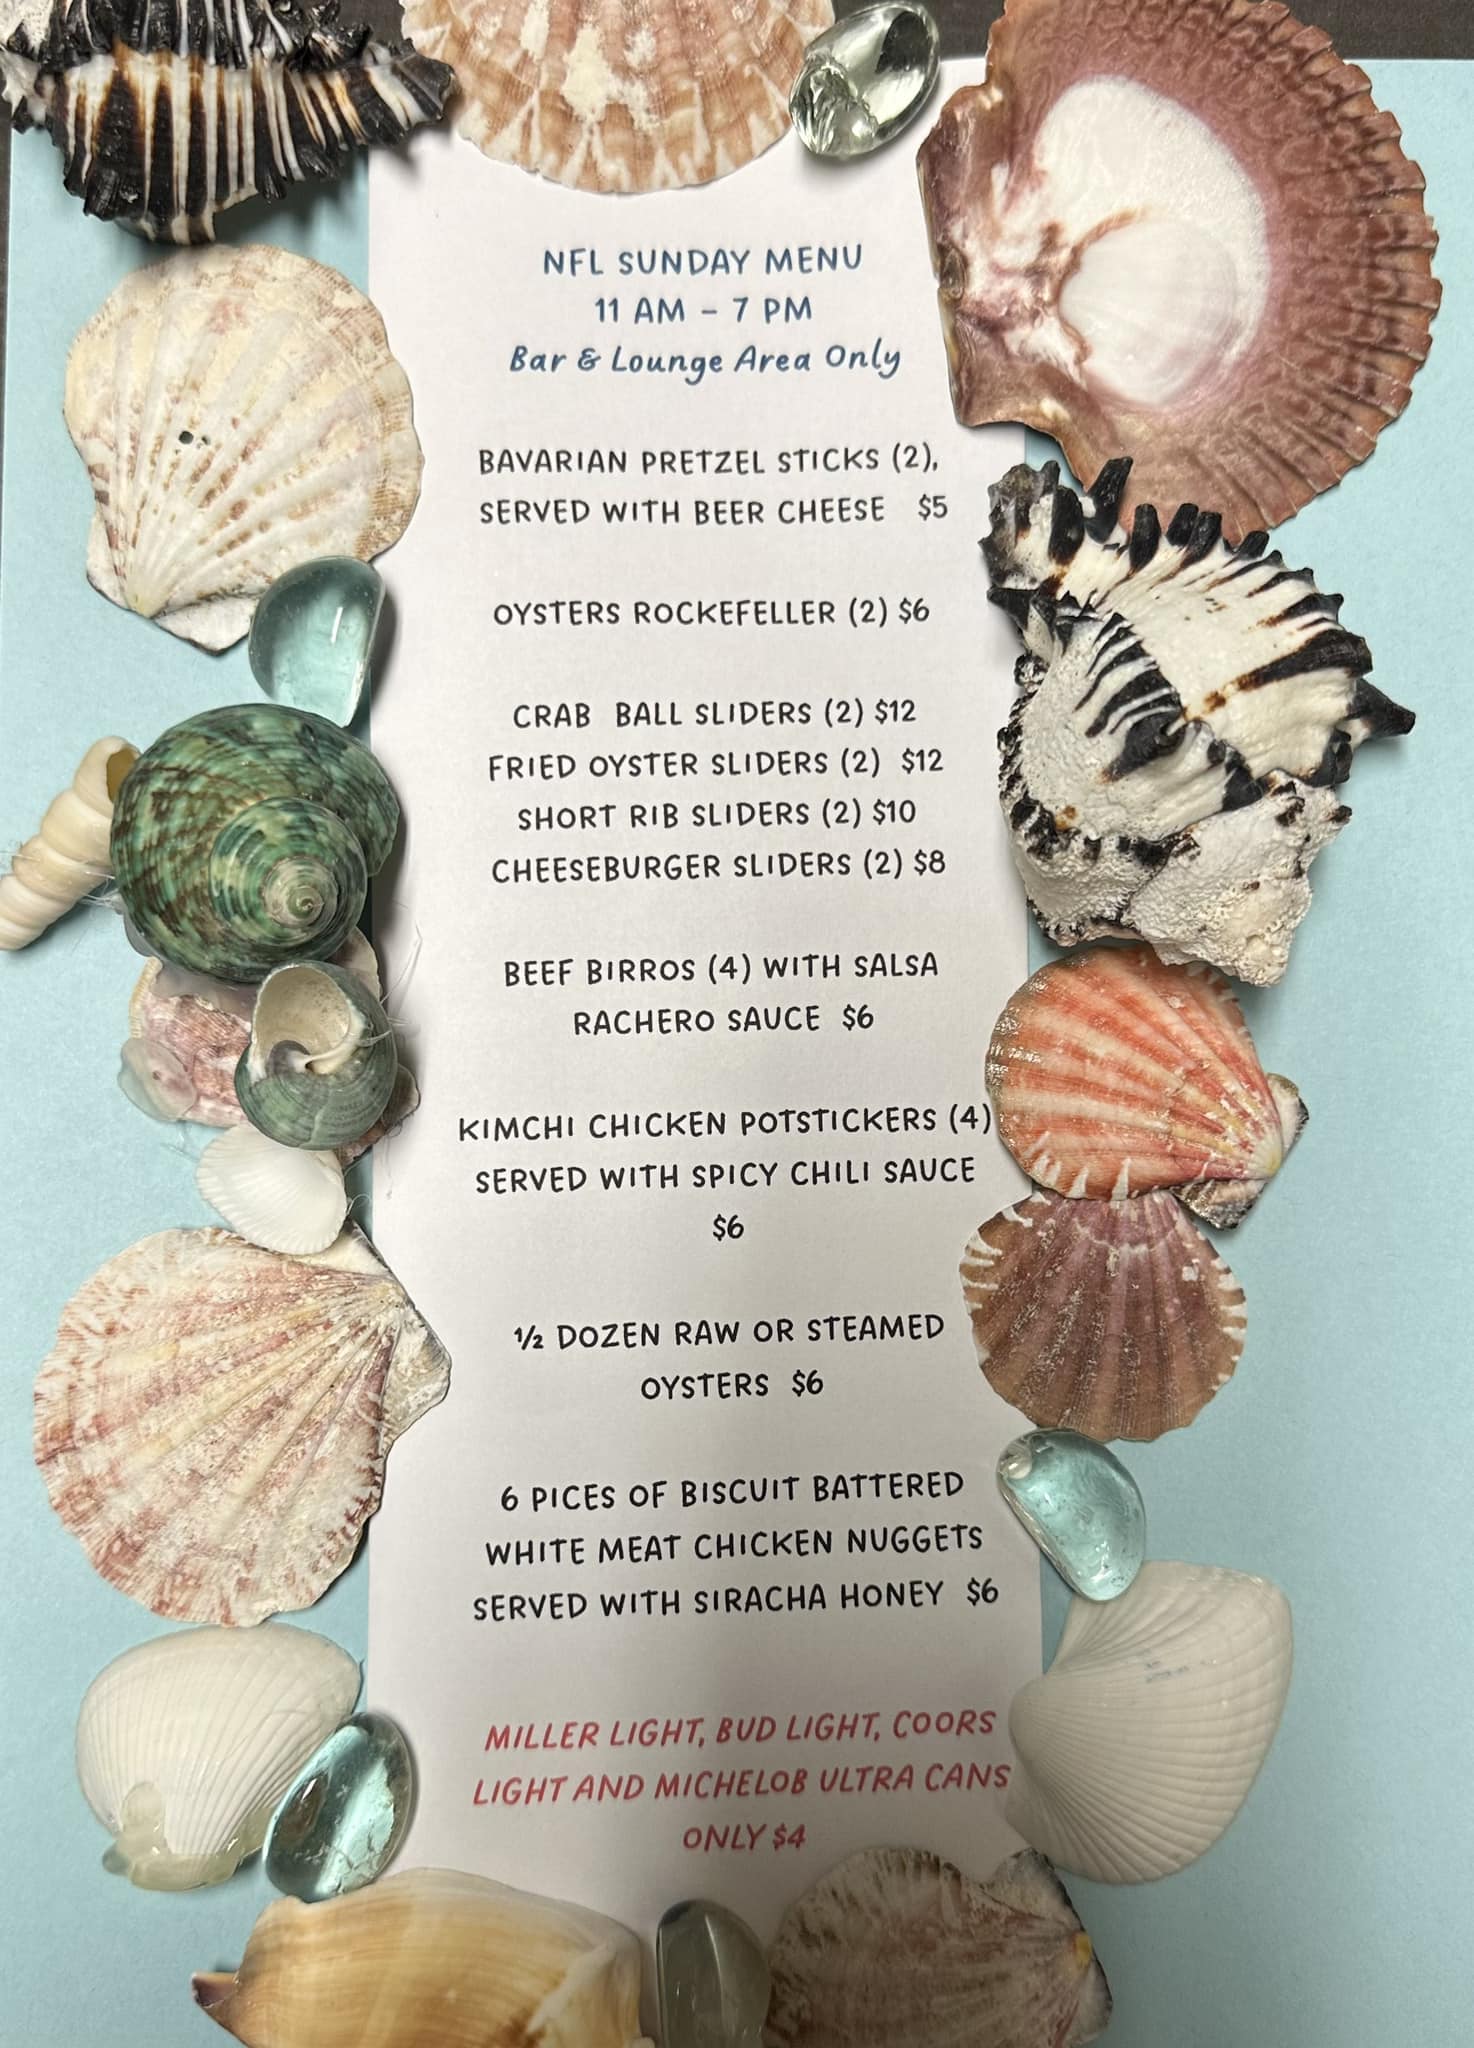 NFL SUNDAY MENU
11 AM – 7 PM
Bar & Lounge Area Only
BAVARIAN PRETZEL STICKS (2),
SERVED WITH BEER CHEESE $5
OYSTERS ROCKEFELLER (2) $6
CRAB BALL SLIDERS (2) $12
FRIED OYSTER SLIDERS (2) $12
SHORT RIB SLIDERS (2) $10
CHEESEBURGER SLIDERS (2) $8
BEEF BIRROS (4) WITH SALSA
RACHERO SAUCE $6
KIMCHI CHICKEN POTSTICKERS (4)
SERVED WITH SPICY CHILI SAUCE
$6
½ DOZEN RAW OR STEAMED
OYSTERS $6
6 PICES OF BISCUIT BATTERED
WHITE MEAT CHICKEN NUGGETS
SERVED WITH SIRACHA HONEY $6
MILLER LIGHT, BUD LIGHT, COORS
LIGHT AND MICHELOB ULTRA CANS
ONLY $4